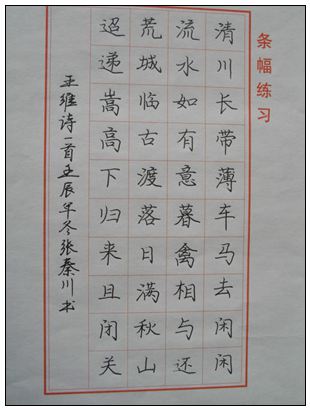 条幅练习
清川长带薄车马去闲闲
流水如有意暮禽相与还
荒城临古渡落日满秋山
迢递嵩高下归来且闭关
王维诗一首壬辰年冬张秦川书